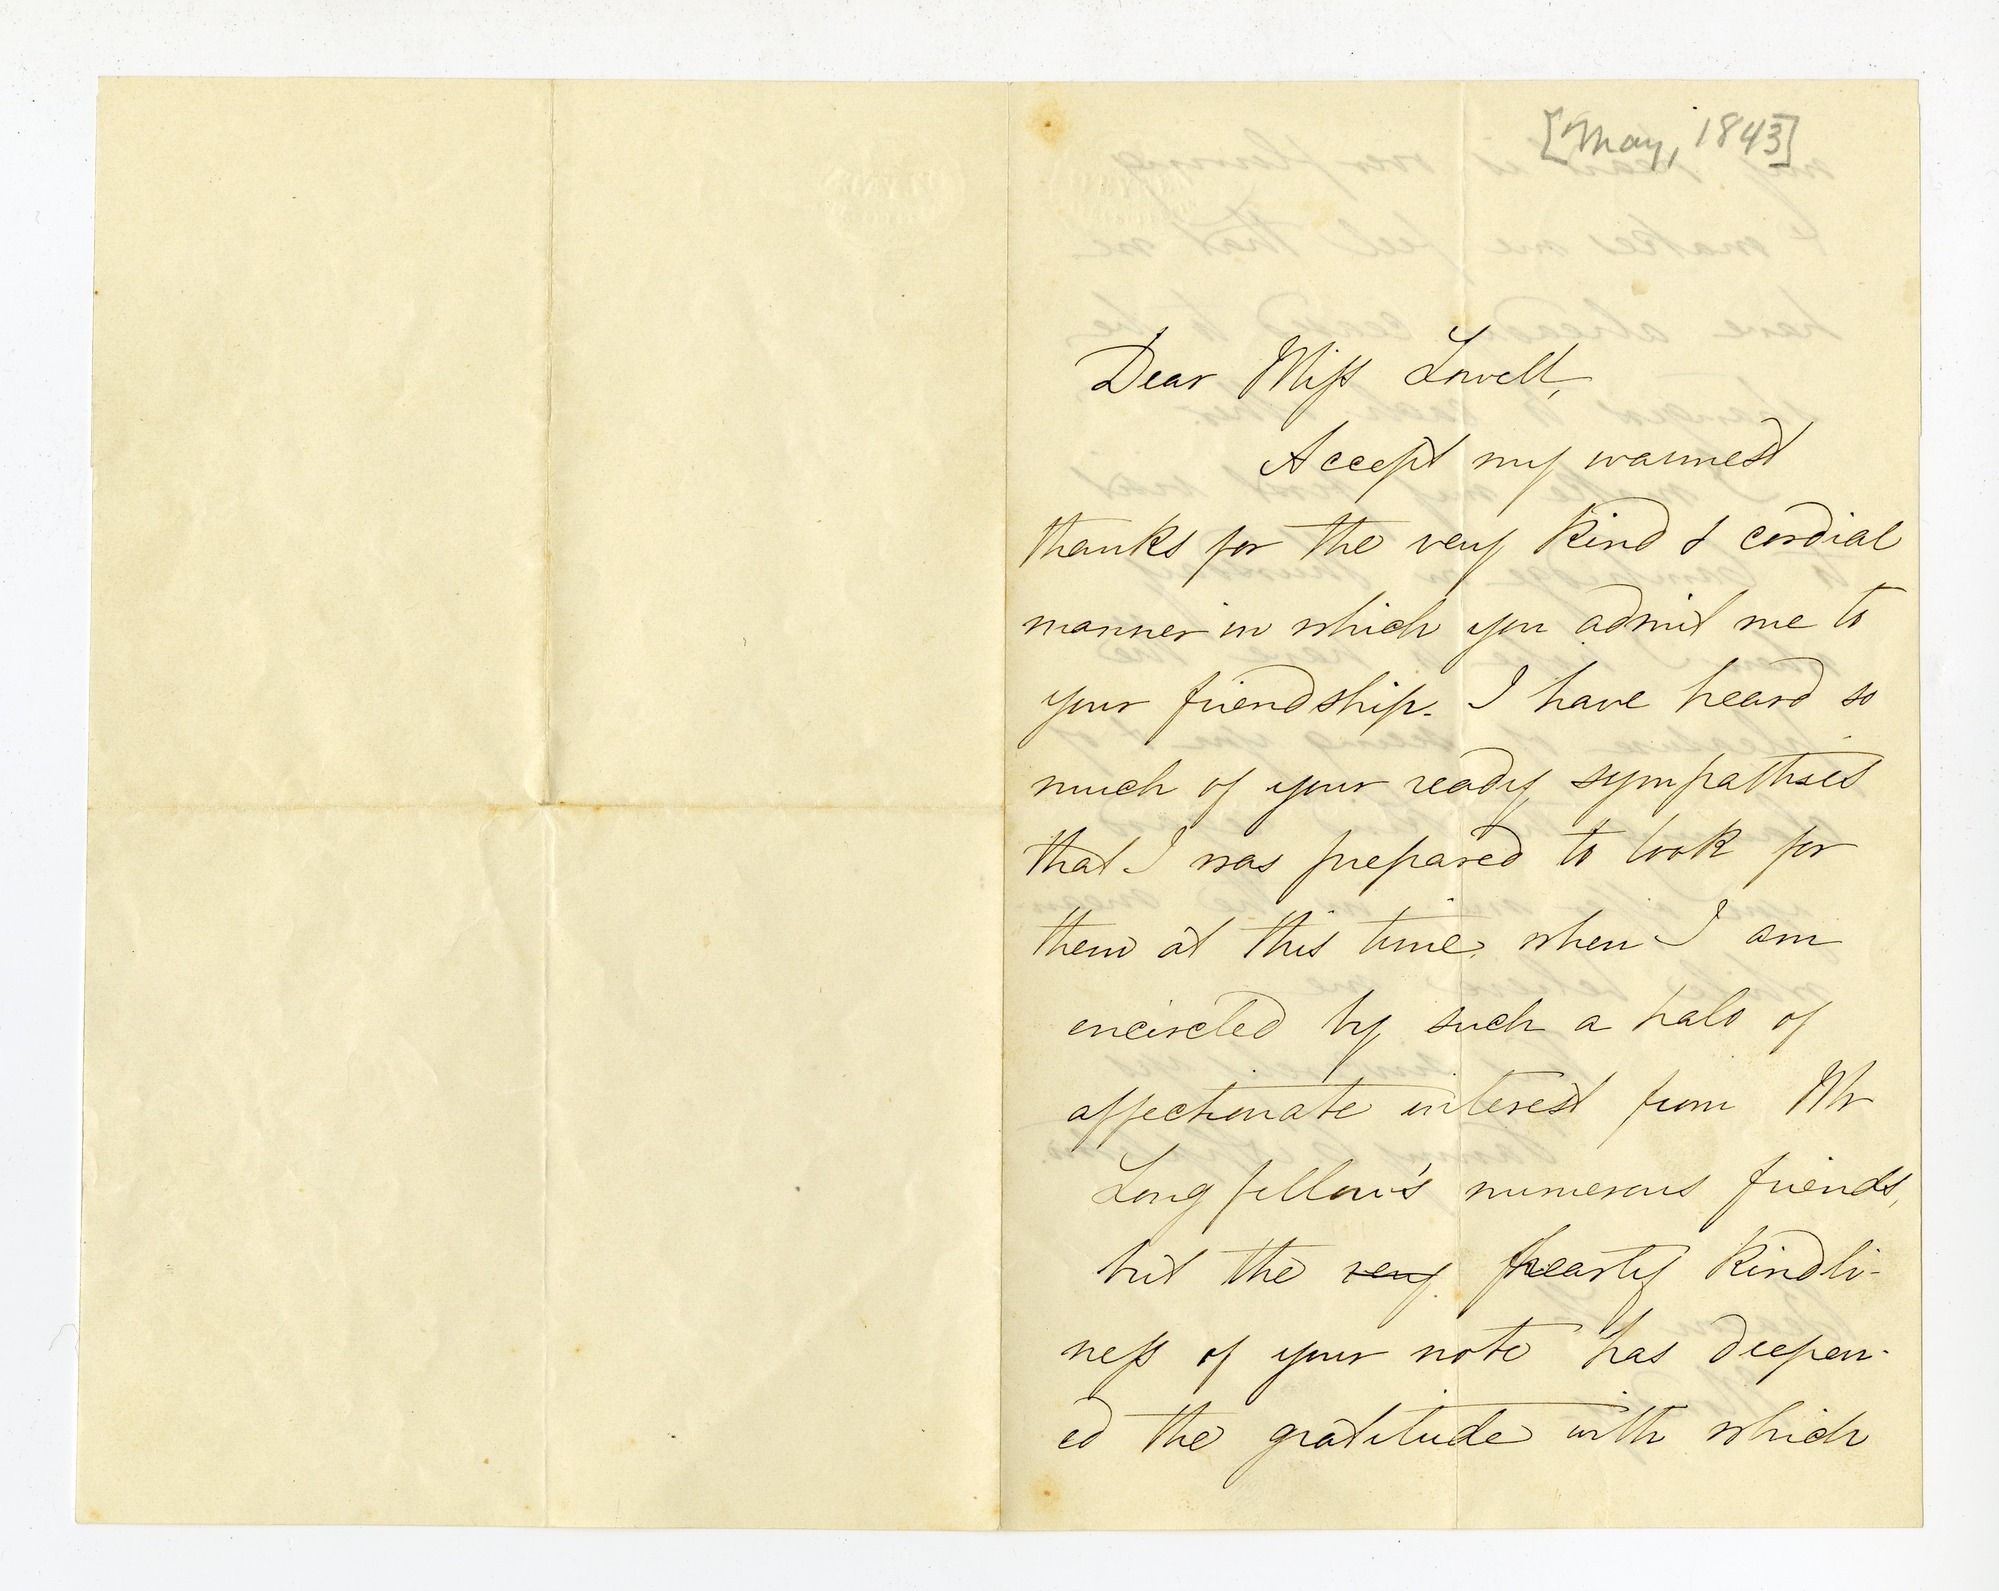 [May, 1843]
Dear Miss Lowell,
Accept my warmest
thanks for the very kind & cordial
manner in which you admit me to
your friendship. I have heard so
much of your ready sympathies
that I was prepared to look for
them at this time, when I am
encircled by such a halo of
affectionate interest from Mr
Longfellow's numerous friends,
but the very hearty kindli-
ness of your note has deepen-
ed the gratitude with which